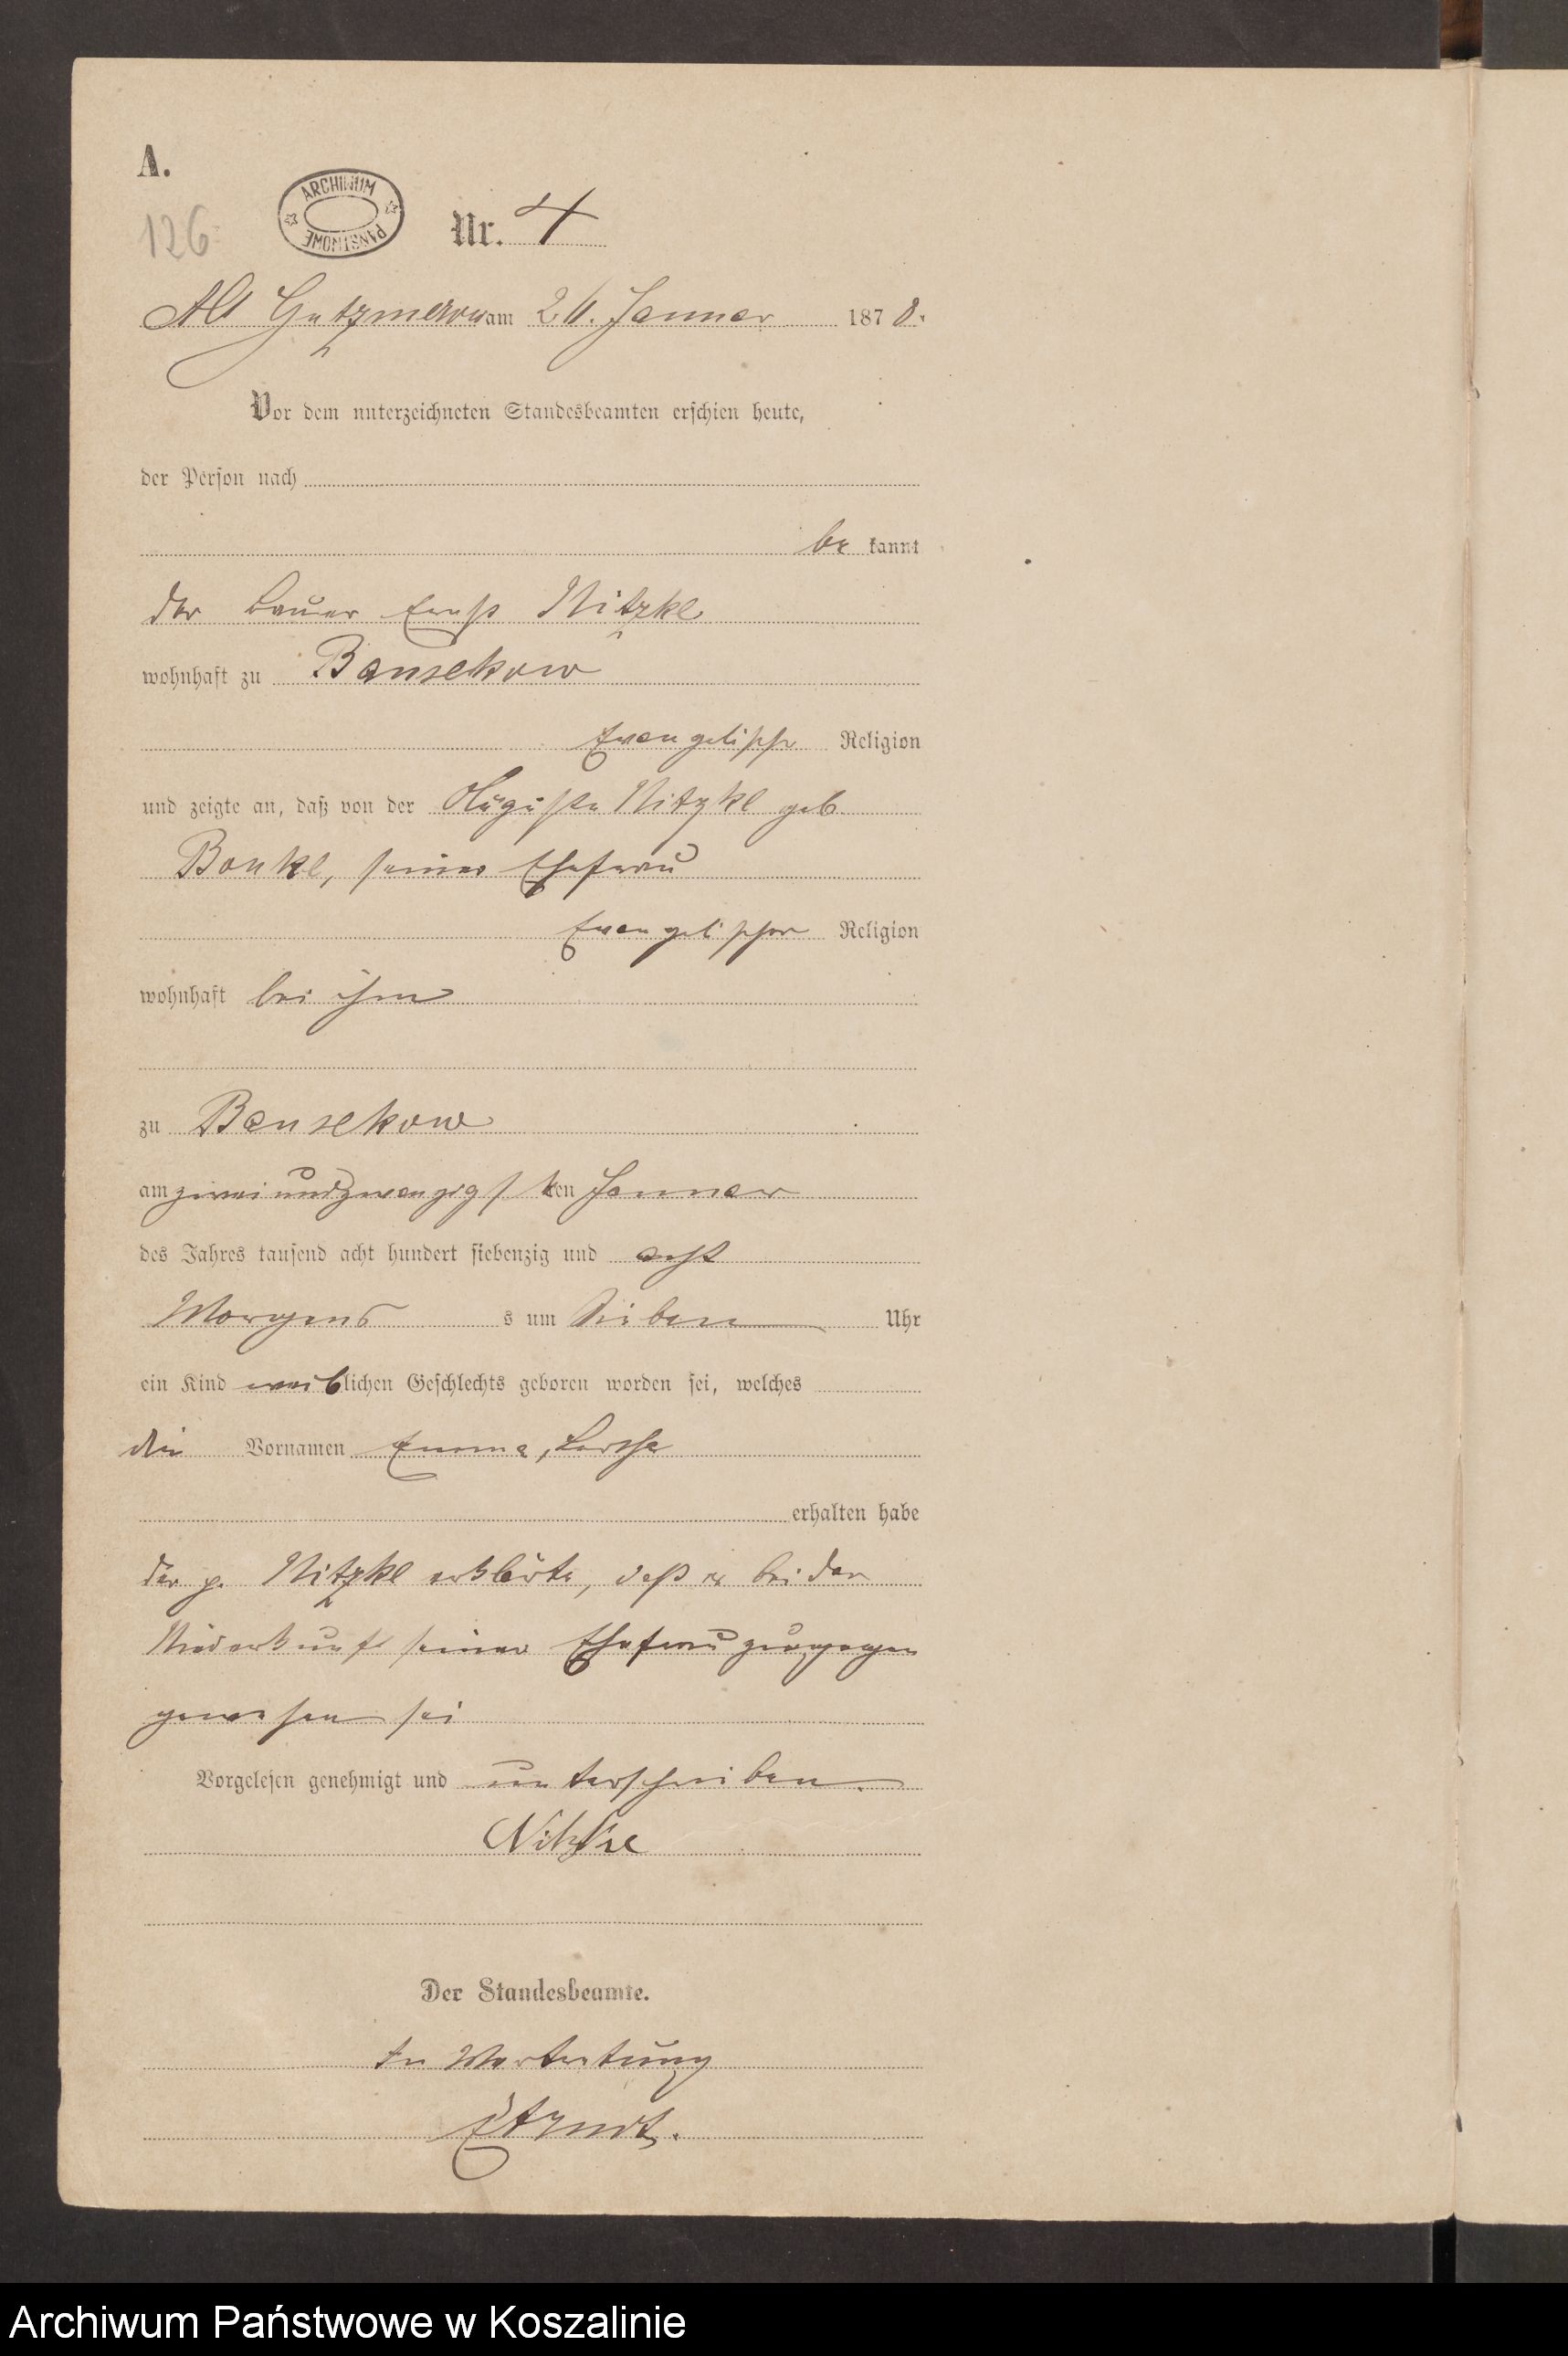 A.
126
ARCHIWUM PAŃSTWOWE
Nr. 4
Alt Gutzmerow am 26. Januar 1878.
Vor dem unterzeichneten Standesbeamten erschien heute,
der Person nach
be kannt
der Bauer Ernst Nitzke
wohnhaft zu Bansekow
Evangelischer Religion
und zeigte an, daß von der Auguste Nitzke geb
Bonke, seiner Ehefrau
Evangelischer Religion
wohnhaft bei ihm
zu Bansekow
am zweiundzwanzigsten Januar
des Jahres tausend acht hundert siebenzig und acht
Morgens s um Sieben Uhr
ein Kind weiblichen Geschlechts geboren worden sei, welches
die Vornamen Emma, Bertha
erhalten habe
der p. Nitzke erklärte, daß er bei der
Niederkunft seiner Ehefrau zugegen
gewesen sei
Vorgelesen genehmigt und unterschrieben.
Nitzke
Der Standesbeamte.
In Vertretung
Arndt.
Archiwum Państwowe w Koszalinie